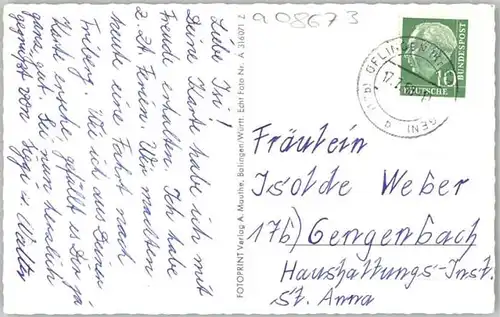 a 08673
Liebe Isi!
Deine Karte habe ich mit
Freude erhalten. Ich habe
z. Zt. Ferien. Wir machten
heute eine Fahrt nach
Freiberg. Wie ich aus Deiner
Karte ersehe, gefällt es Dir ja
ganz gut. Sei nun herzlich
gegrüßt von Sigi u. Walter
FOTOPRINT Verlag A. Mauthe, Balingen/Württ. Echt Foto Nr. A 316071 Z
10
DEUTSCHE
BUNDESPOST
Fräulein
Isolde Weber
17b) Gengenbach
Haushaltungs-Inst.
St. Anna